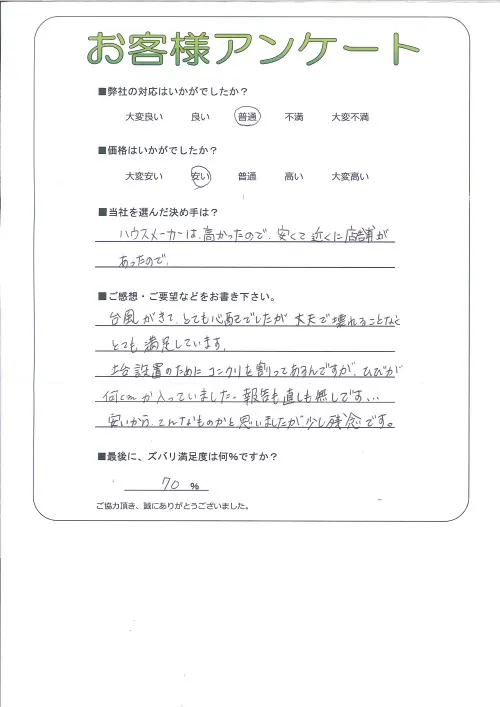 お客様アンケート
■弊社の対応はいかがでしたか？
大変良い 良い 普通 不満 大変不満
■価格はいかがでしたか？
大変安い 安い 普通 高い 大変高い
■当社を選んだ決め手は？
ハウスメーカーは、高かったので、安くて近くに店舗が
あったので、
■ご感想・ご要望などをお書き下さい。
台風がきて、とても心配でしたが 丈夫で壊れることなく
とても満足しています。
土台設置のためにコンクリを割ってあるんですが、ひびが
何cmか入っていました。報告も直しも無しです...
安いから、こんなものかと思いましたが少し残念です。
■最後に、ズバリ満足度は何％ですか？
70 ％
ご協力頂き、誠にありがとうございました。